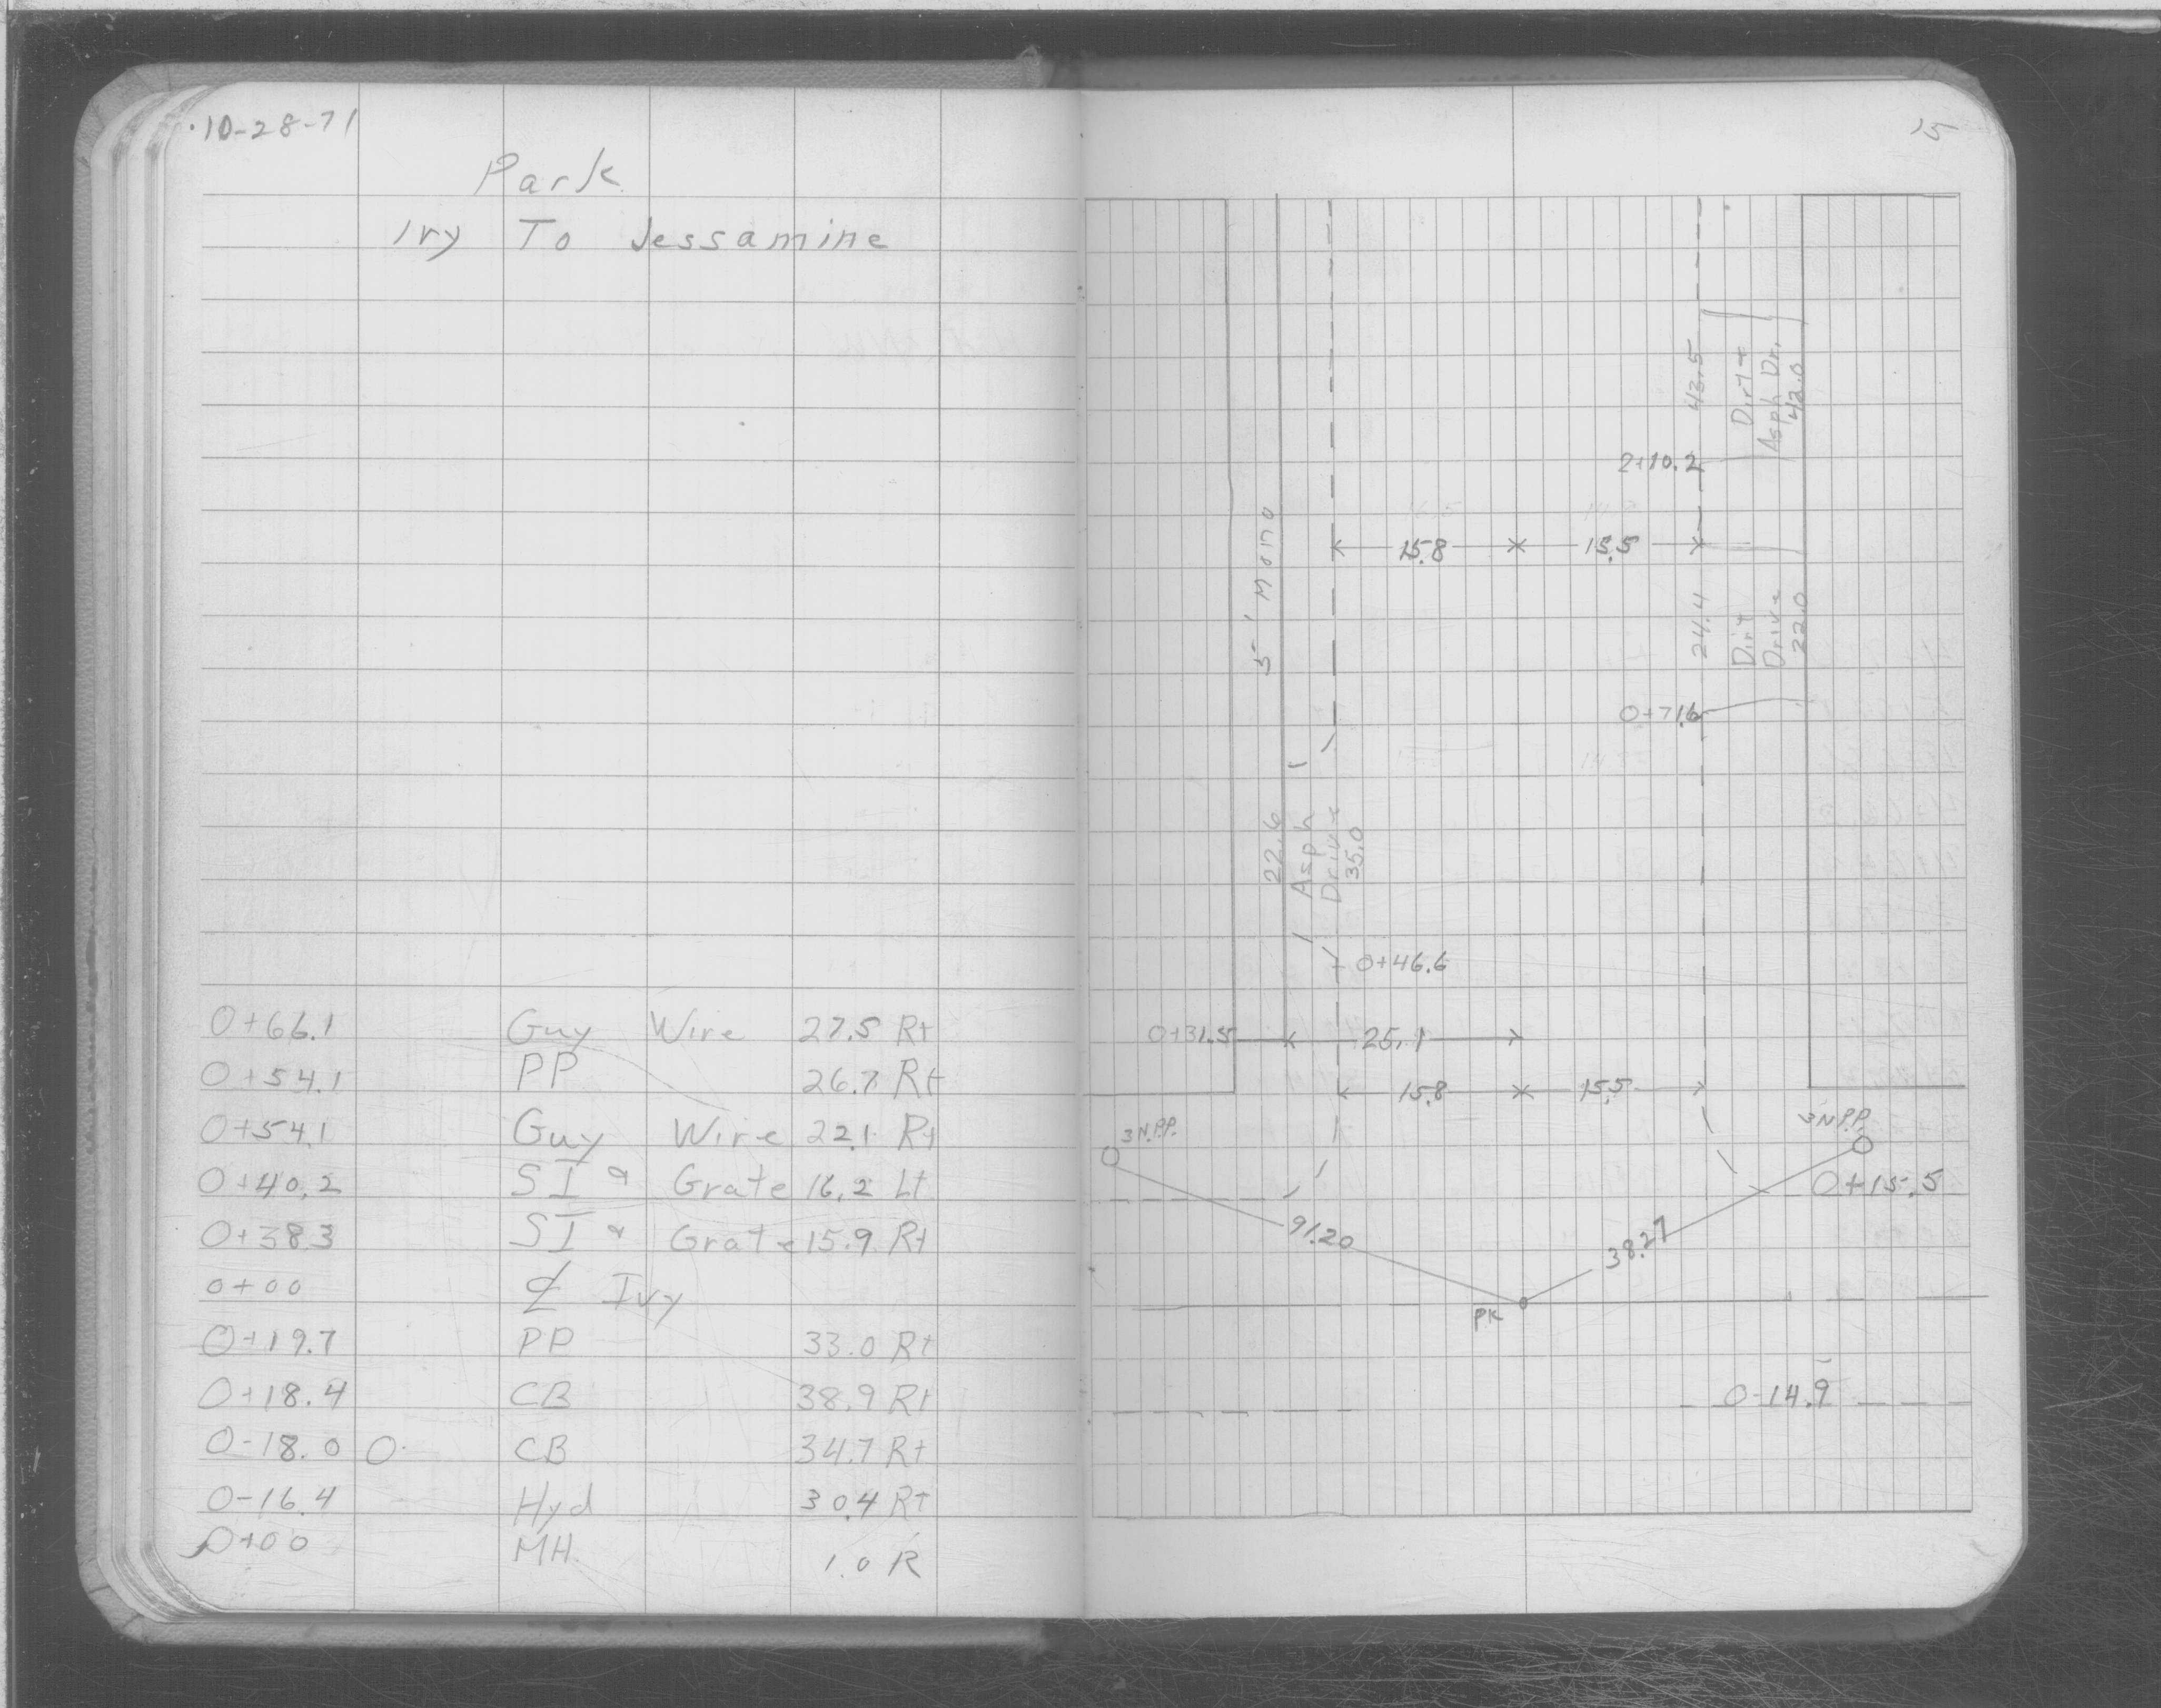 10-28-71
Park
Ivy To Jessamine
0+66.1 Guy Wire 27.5 Rt
0+54.1 PP 26.7 Rt
0+54.1 Guy Wire 22.1 Rt
0+40.2 SI & Grate 16.2 Lt
0+38.3 SI & Grate 15.9 Rt
0+00 ℄ Ivy
0+19.7 PP 33.0 Rt
0+18.4 CB 38.9 Rt
0-18.0 0 CB 34.7 Rt
0-16.4 Hyd 30.4 Rt
0+00 MH 1.0 R
15
43.5
Dirt +
Asph Dr.
42.0
2+10.2
15.8 15.5
5' Mono
24.4
Dirt
Drive
22.0
0+71.6
22.6
Asph
Drive
35.0
0+46.6
0+31.5 25.1
15.8 15.5
3N.P.P. 3N P.P.
0+15.5
91.20 38.27
PK
0-14.9